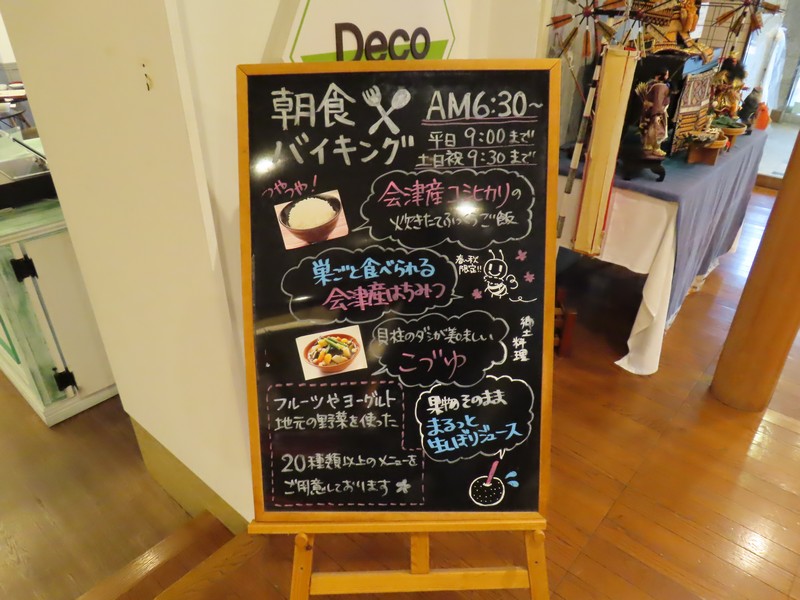 Deco
朝食
バイキング
AM6:30~
平日 9:00まで
土日祝 9:30まで
つやつや!
会津産コシヒカリの
炊きたてふっくらご飯
巣ごと食べられる
会津産はちみつ
春~秋
限定!!
貝柱のダシが美味しい
こづゆ
郷土料理
フルーツやヨーグルト
地元の野菜を使った
20種類以上のメニューを
ご用意しております
果物そのまま
まるっと
生しぼりジュース